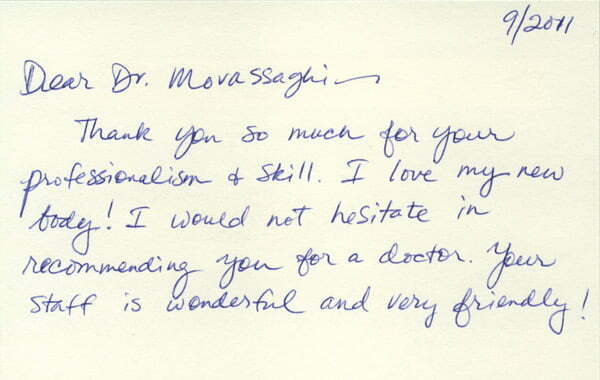 9/2011
Dear Dr. Movassaghi
Thank you so much for your
professionalism & skill. I love my new
body! I would not hesitate in
recommending you for a doctor. Your
staff is wonderful and very friendly!